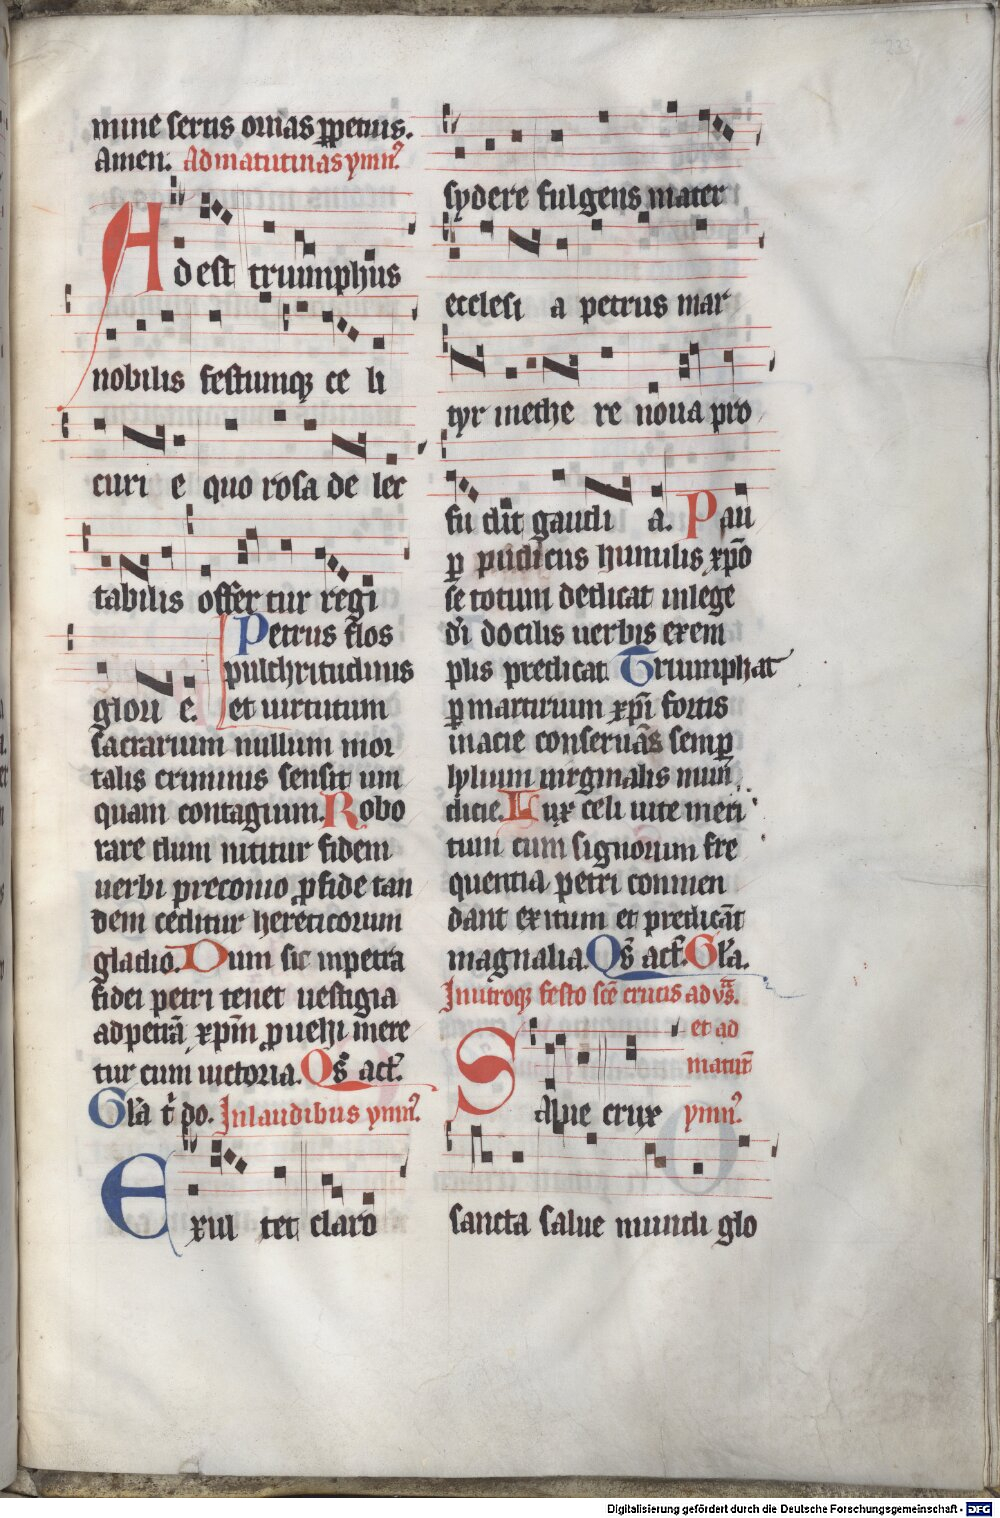 233
mine sertis ornas ꝑpetuis.
Amen. Ad matutinas ymnꝰ.
Adest triumphus
nobilis festumqꝫ ce li
curi e quo rosa de lec
tabilis offer tur regi
glori e. Petrus flos
pulchritudinis
et uirtutum
sacrarium nullum mor
talis criminis sensit um
quam contagium. Robo
rare dum nititur fidem
uerbi preconio ꝓ fide tan
dem ceditur hereticorum
gladio. Dum sic inpetta
fidei petri tenet uestigia
ad petrā xp̄m ꝓuehi mere
tur cum uictoria. Qs̄ act̄.
Gl̄a t̄ do. In laudibus ymnꝰ.
Exul tet claro
sydere fulgens mater
ecclesi a petrus mar
tyr inethe re noua pro
fu dit gaudi a. Pau
ꝑ pudicus humilis xp̄o
se totum dedicat in lege
d̄i docilis uerbis exem
plis predicat Triumphat
ꝑ martirium xp̄i fortis
in acie conseruās semꝑ
lylium uirginalis mun
dicie. Lux celi uite meri
tum cum signorum fre
quentia petri conmen
dant exitum et predicāt
magnalia. Qs̄ act̄. Gl̄a.
In utroqꝫ festo scē crucis ad vs̄.
et ad
matut̄
Salue crux ymnꝰ.
sancta salue mundi glo
Digitalisierung gefördert durch die Deutsche Forschungsgemeinschaft - DFG